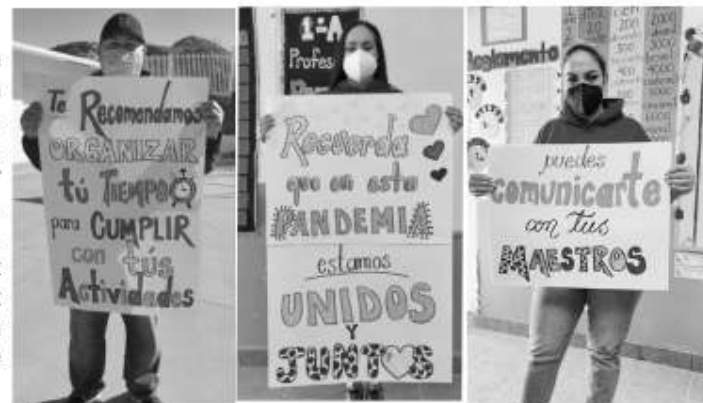 Te Recomendamos
ORGANIZAR
tú TIEMPO
para CUMPLIR
con tús
Actividades
1-A
Profes
Recuerda
que en esta
PANDEMIA
estamos
UNIDOS
Y
JUNTOS
Reglamento
puedes
comunicarte
con tus
MAESTROS